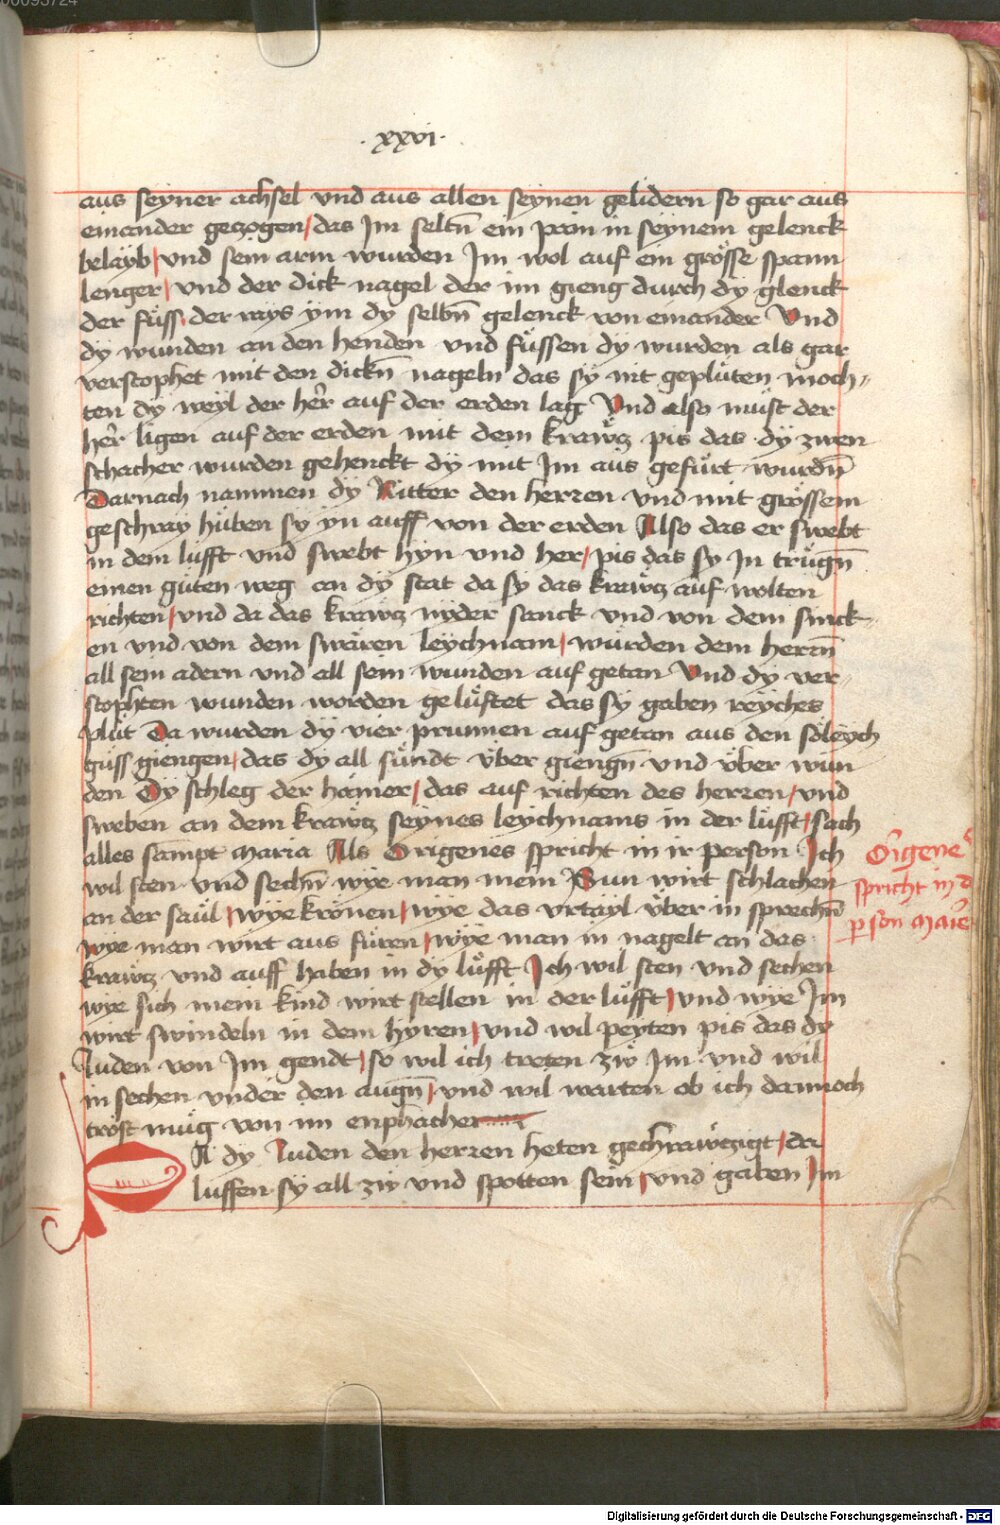 00093724
·xxvi·
aus seyner achsel vnd aus allen seynen gelidern so gar aus
einander gezogen / das Jm seltn̄ ein pain in seynem gelenck
belayb / vnd sein arm wurden Jm wol auf ein grösse spann
lenger / vnd der dick nagel der im gieng durch dy glenck
der füss / der rays ym dy selbn̄ gelenck von einander Vnd
dy wunden an den henden vnd füssen dy wurden als gar
verstophet mit den dickn̄ nageln das sy nit geplüten moch„
ten dy weyl der her̄ auf der erden lag Vnd also must der
her̄ ligen auf der erden mit dem krawtz pis das dy zwen
schacher wurden gehenckt dy mit Jm aus gefürt wurdn̄
Darnach nammen dy Ritter den herren vnd mit grössem
geschray hüben sy yn auff von der erden Also das er swebt
in dem lufft vnd swebt hyn vnd her / pis das sy Jn trügn̄
einen güten weg an dy stat da sy das krawtz auf wolten
richten / vnd da das krawtz nyder sanck vnd von dem sinck„
en vnd von dem swären leychnam / wurden dem herrn̄
all sein adern vnd all sein wunden auf getan Vnd dy ver„
stophten wunden worden gelüftet das sy gaben reyches
plüt Da wurden dy vier prunnen auf getan aus den
güss giengen / das dy all sündt über giengn̄ vnd über wun
den Dy schleg der hämer / das auf richten des herren / vnd
sweben an dem krawtz seynes leychnams in der lüfft / sach
alles sampt Maria Als Origenes spricht in ir person Ich
wil sten vnd sechn̄ wye man mein Sun wirt schlachen
an der saül / wye krönen / wye das vrtayl über in sprechn̄
wye man wirt aus füren / wye man in nagelt an das
krawtz vnd auff haben in dy lüfft Ich wil sten vnd sechen
wye sich mein kind wirt stellen in der lüfft / vnd wye Jm
wirt swindeln in dem hyren / vnd wil peyten pis das dy
Juden von Jm gendt / so wil ich treten zw Jm vnd wil
in sechen vnder den augn̄ / vnd wil warten ob ich dannoch
tröst müg von im enphacher
A dy Juden den herren heten gechrawtzigt / da
luffen sy all zw vnd spotten sein / vnd gaben Jm
Origene
spricht in
person Marie
Digitalisierung gefördert durch die Deutsche Forschungsgemeinschaft - DFG